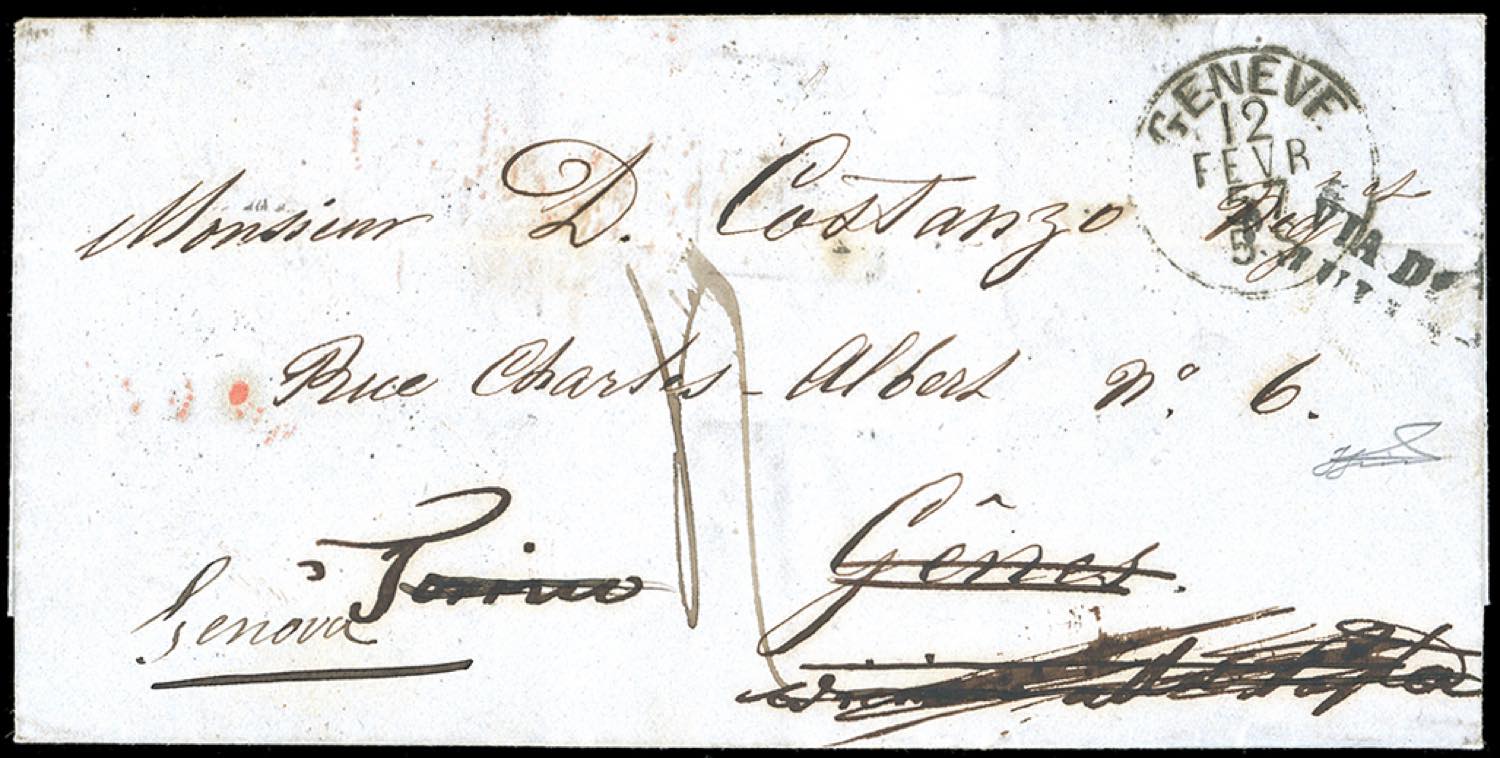 GENEVE
12
FEVR
57
5
VIA D
Monsieur D. Costanzo
Rue Charles-Albert N.° 6.
Gênes.
à Torino
Genova